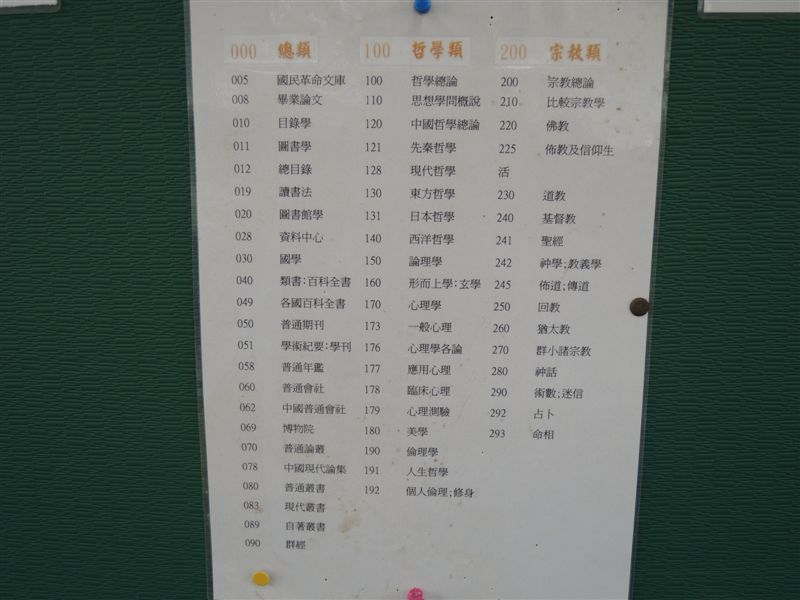 000 總類
005 國民革命文庫
008 畢業論文
010 目錄學
011 圖書學
012 總目錄
019 讀書法
020 圖書館學
028 資料中心
030 國學
040 類書;百科全書
049 各國百科全書
050 普通期刊
051 學術紀要;學刊
058 普通年鑑
060 普通會社
062 中國普通會社
069 博物院
070 普通論叢
078 中國現代論集
080 普通叢書
083 現代叢書
089 自著叢書
090 群經
100 哲學類
100 哲學總論
110 思想學問概說
120 中國哲學總論
121 先秦哲學
128 現代哲學
130 東方哲學
131 日本哲學
140 西洋哲學
150 論理學
160 形而上學;玄學
170 心理學
173 一般心理
176 心理學各論
177 應用心理
178 臨床心理
179 心理測驗
180 美學
190 倫理學
191 人生哲學
192 個人倫理;修身
200 宗教類
200 宗教總論
210 比較宗教學
220 佛教
225 佈教及信仰生
活
230 道教
240 基督教
241 聖經
242 神學;教義學
245 佈道;傳道
250 回教
260 猶太教
270 群小諸宗教
280 神話
290 術數;迷信
292 占卜
293 命相